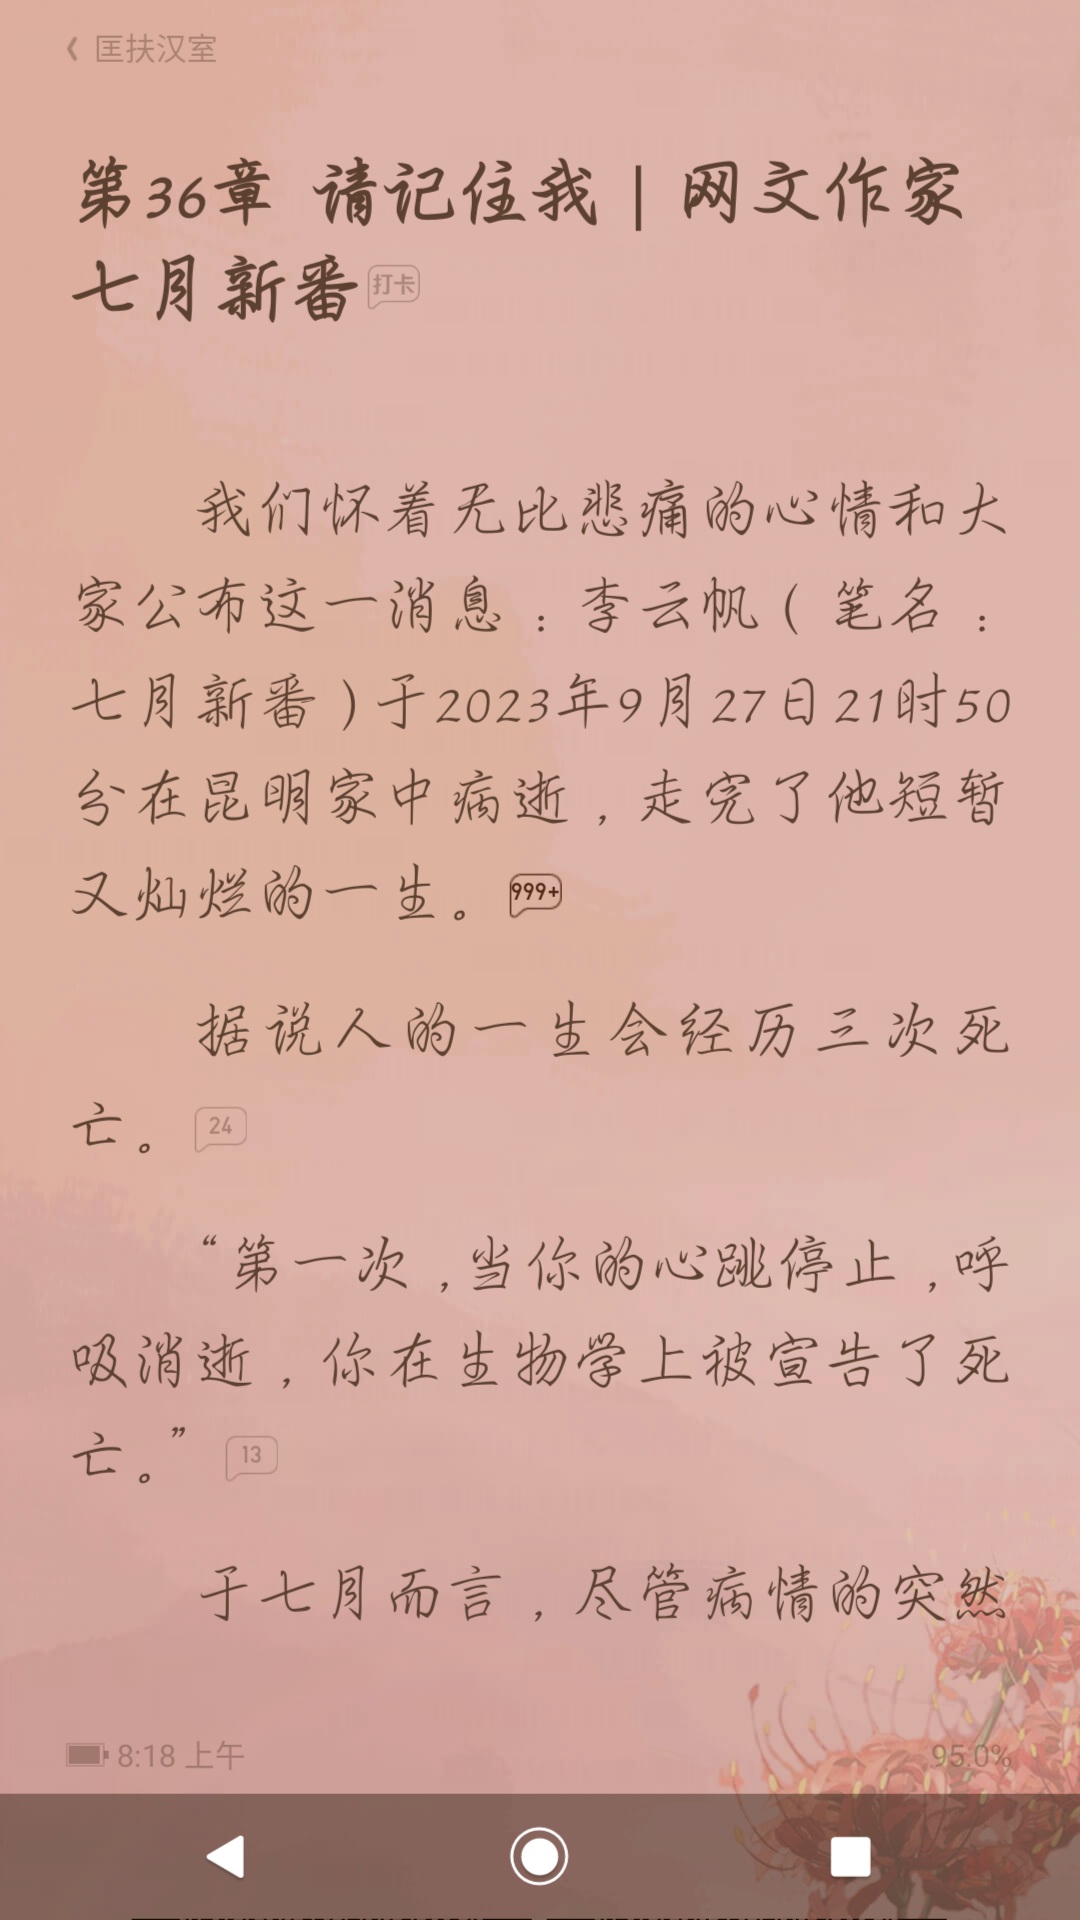 匡扶汉室
第36章 请记住我 | 网文作家
七月新番 打卡
我们怀着无比悲痛的心情和大
家公布这一消息：李云帆（笔名：
七月新番）于2023年9月27日21时50
分在昆明家中病逝，走完了他短暂
又灿烂的一生。 999+
据说人的一生会经历三次死
亡。 24
“第一次，当你的心跳停止，呼
吸消逝，你在生物学上被宣告了死
亡。” 13
于七月而言，尽管病情的突然
8:18 上午 95.0%